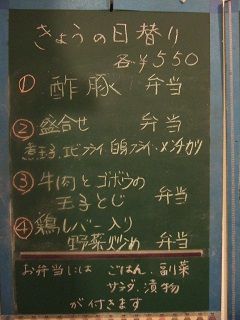 きょうの日替り
各¥550
① 酢豚 弁当
② 盛合せ 弁当
煮玉子、エビフライ 白身フライ・メンチカツ
③ 牛肉とゴボウの
玉子とじ 弁当
④ 鶏レバー入り
野菜炒め 弁当
お弁当には ごはん、副菜
サラダ、漬物
が付きます